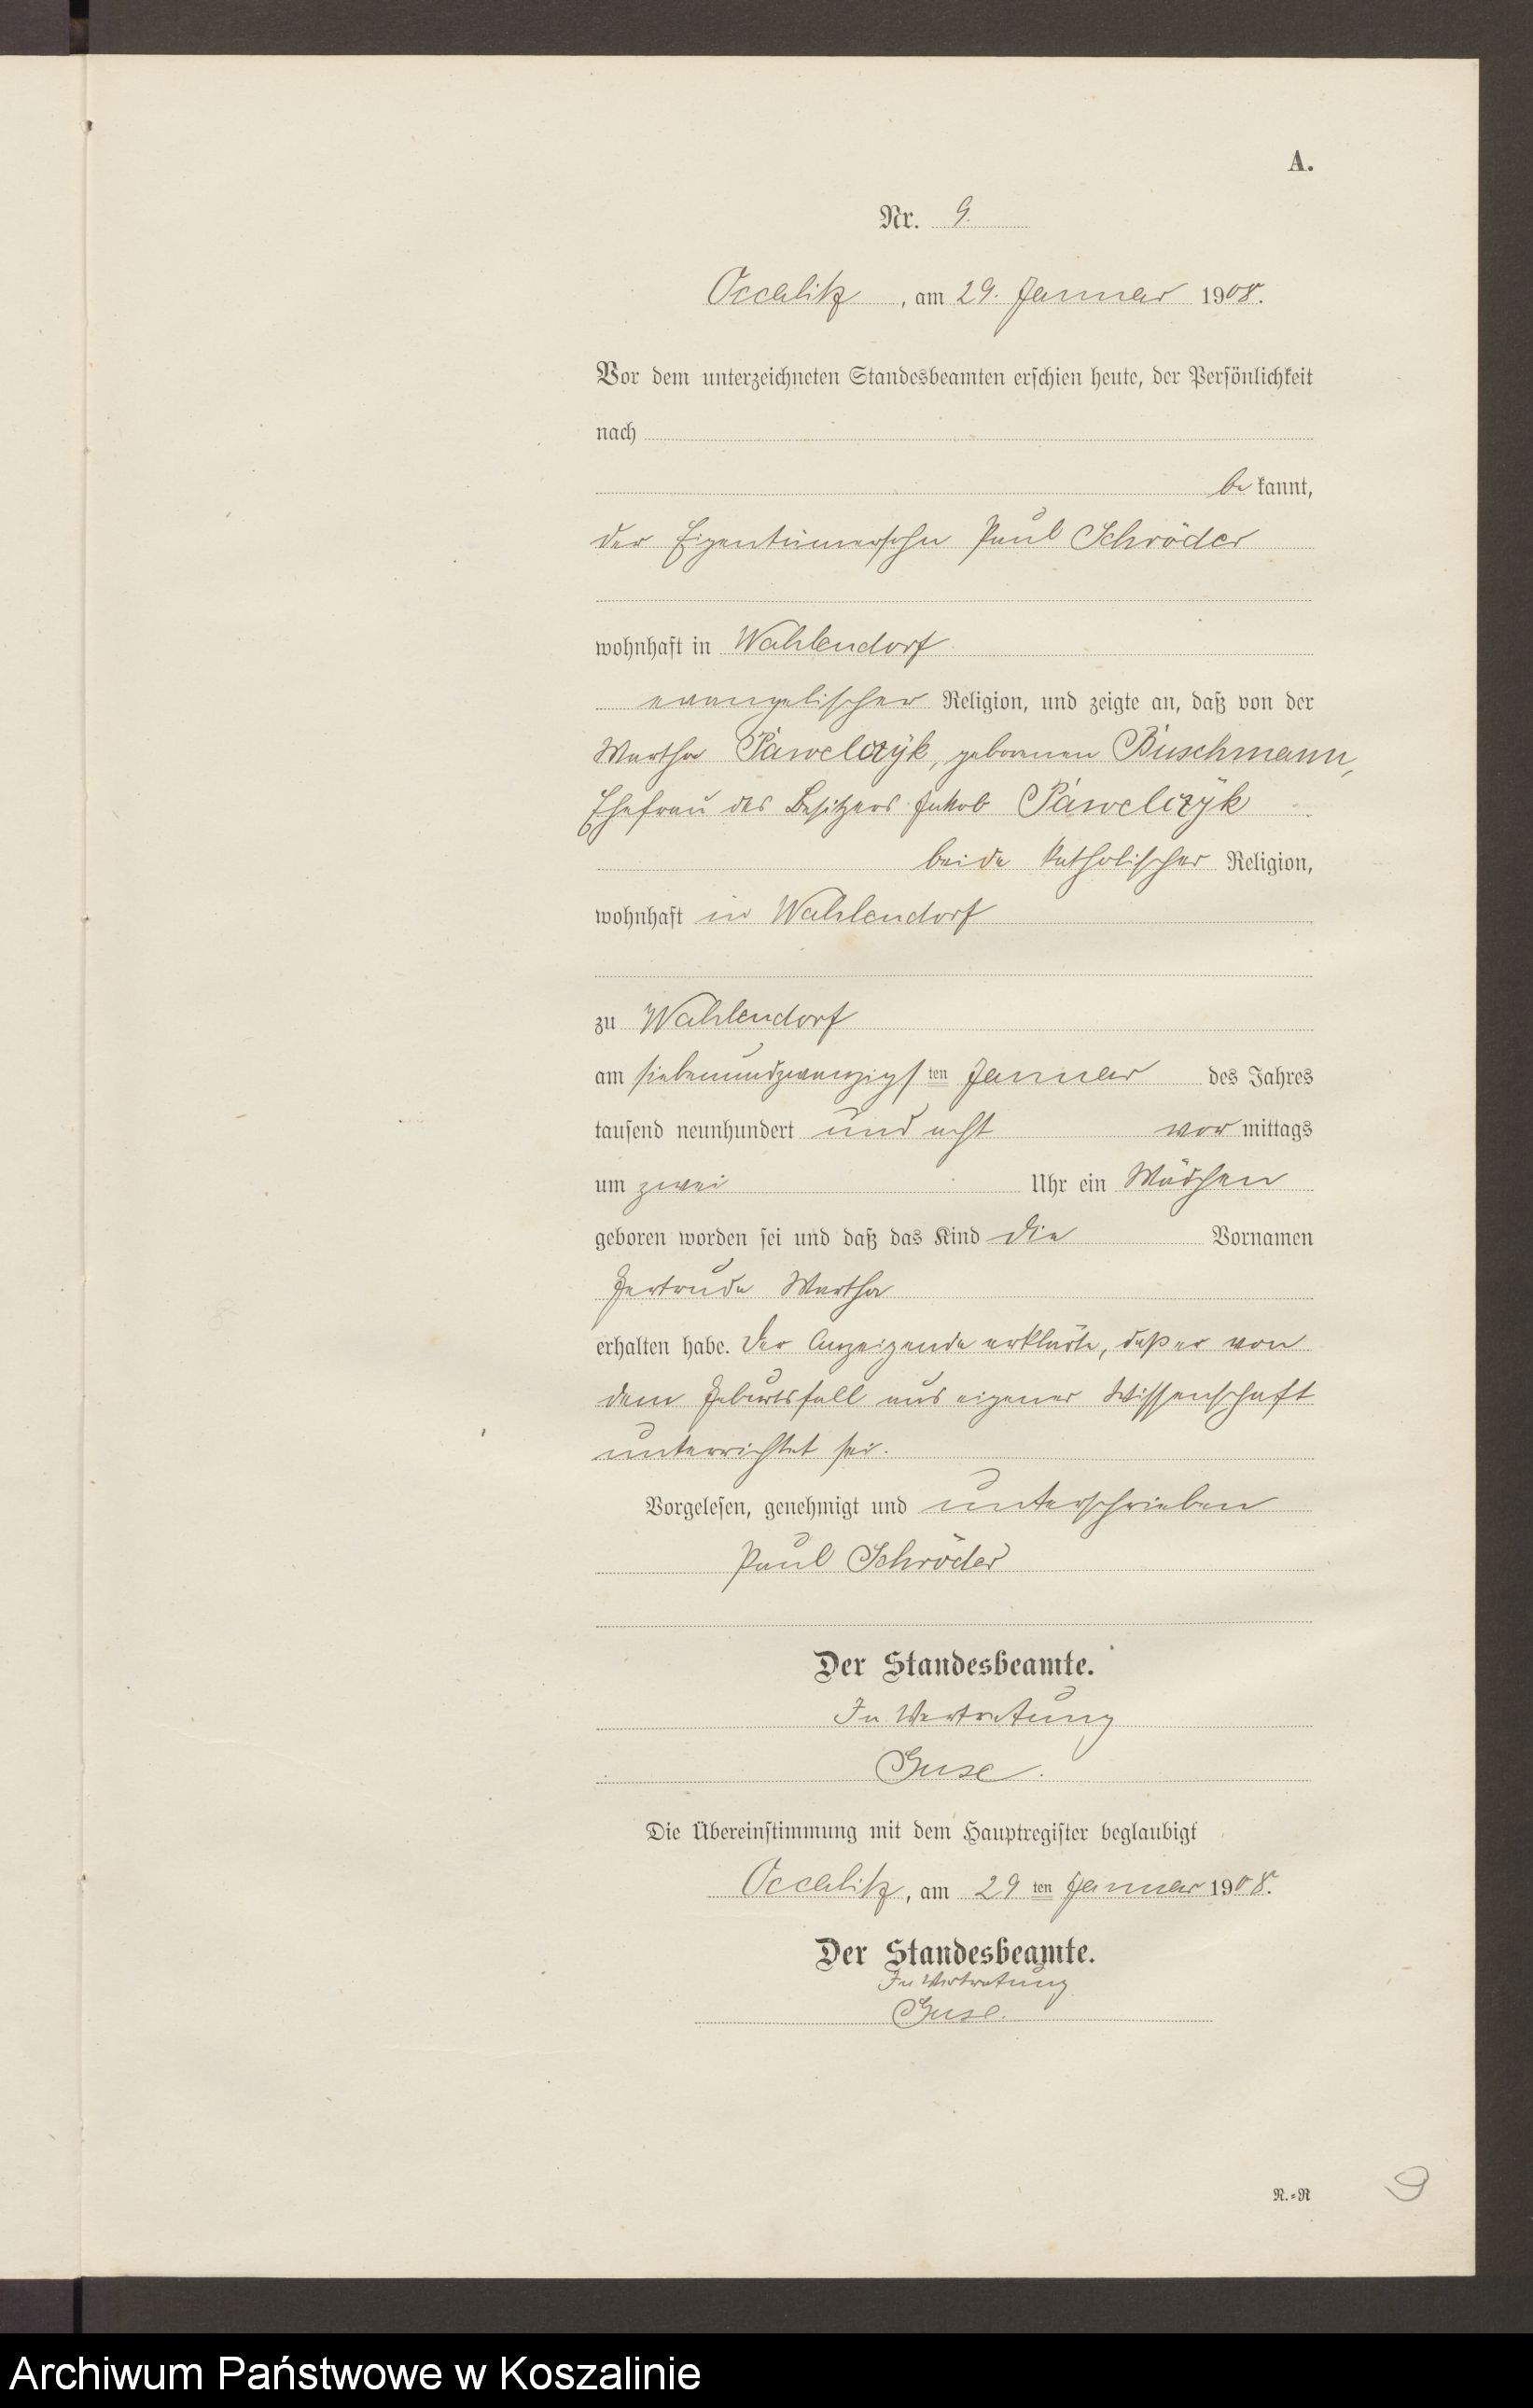 A.
Nr. 9.
Occalitz, am 29. Januar 1908.
Vor dem unterzeichneten Standesbeamten erschien heute, der Persönlichkeit
nach
bekannt,
der Eigentümersohn Paul Schröder
wohnhaft in Wahlendorf
evangelischer Religion, und zeigte an, daß von der
Martha Pawelczyk, geborenen Buschmann,
Ehefrau des Besitzers Jakob Pawelczyk
beide katholischer Religion,
wohnhaft in Wahlendorf
zu Wahlendorf
am siebenundzwanzigsten Januar des Jahres
tausend neunhundert und acht vormittags
um zwei Uhr ein Mädchen
geboren worden sei und daß das Kind die Vornamen
Gertrude Martha
erhalten habe. Der Anzeigende erklärte, daß er von
dem Geburtsfall aus eigener Wissenschaft
unterrichtet sei.
Vorgelesen, genehmigt und unterschrieben
Paul Schröder
Der Standesbeamte.
In Vertretung
Guse.
Die Übereinstimmung mit dem Hauptregister beglaubigt
Occalitz, am 29ten Januar 1908.
Der Standesbeamte.
In Vertretung
Guse.
R.=R
9
Archiwum Państwowe w Koszalinie